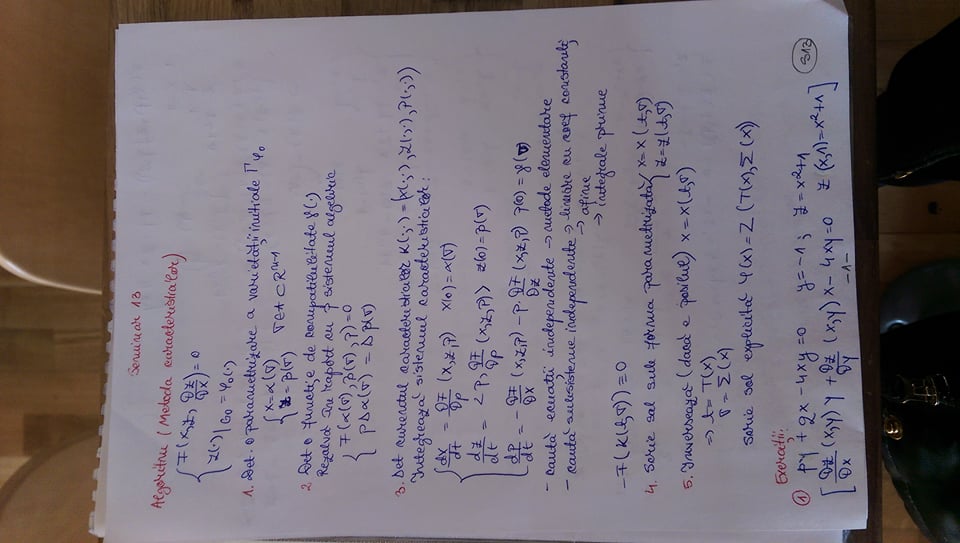 Seminar 13
Algoritm (Metoda caracteristicilor)
{ F(x, z, Dz/Dx) = 0
z(·)|G₀ = φ₀(·)
1. Det. o parametrizare a varietății initiale Γφ₀
{ x = α(σ) σ ∈ A ⊂ Rⁿ⁻¹
z = β(σ)
2. Det o funcție de compatibilitate γ(·)
Rezolvă în raport cu p sistemul algebric
{ F(α(σ), β(σ), p) = 0
p Dα(σ) = Dβ(σ)
3. Det curentul caracteristicilor K(·,·) = (X(·,·), Z(·,·), P(·,·))
Integrează sistemul caracteristicilor:
{ dx/dt = DF/Dp (x,z,p) x(0) = α(σ)
dz/dt = <p, DF/Dp (x,z,p)> z(0) = β(σ)
dp/dt = - DF/Dx (x,z,p) - p · DF/Dz (x,z,p) p(0) = γ(σ)
- caută ecuații independente → metode elementare
- caută subsisteme independente → liniare cu coef constanți
→ afine
→ integrale prime
- F(K(t,σ)) ≡ 0
4. Scrie sol sub forma parametrizată { x = X(t,σ)
z = Z(t,σ)
5. Inversează (dacă e posibil) x = X(t,σ)
⇒ t = T(x)
σ = Σ(x)
scrie sol explicită φ(x) = Z(T(x), Σ(x))
Exerciții:
① py + qx - 4xy = 0 y = -1 ; z = x²+1
[ Dz/Dx (x,y) y + Dz/Dy (x,y) x - 4xy = 0 z(x,1) = x²+1 ]
S13
-1-